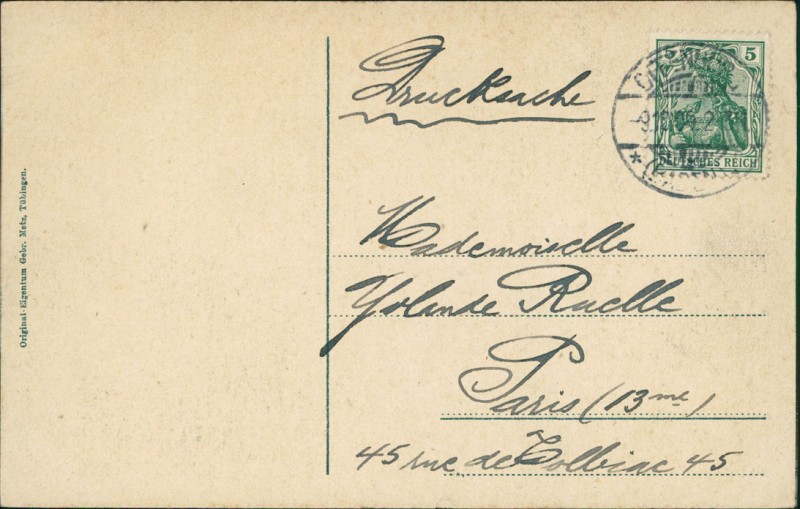 Drucksache
5 5
DEUTSCHES REICH
Mademoiselle
Yolande Ruelle
Paris (13me)
45 rue de Tolbiac 45
Original-Eigentum Gebr. Metz, Tübingen.